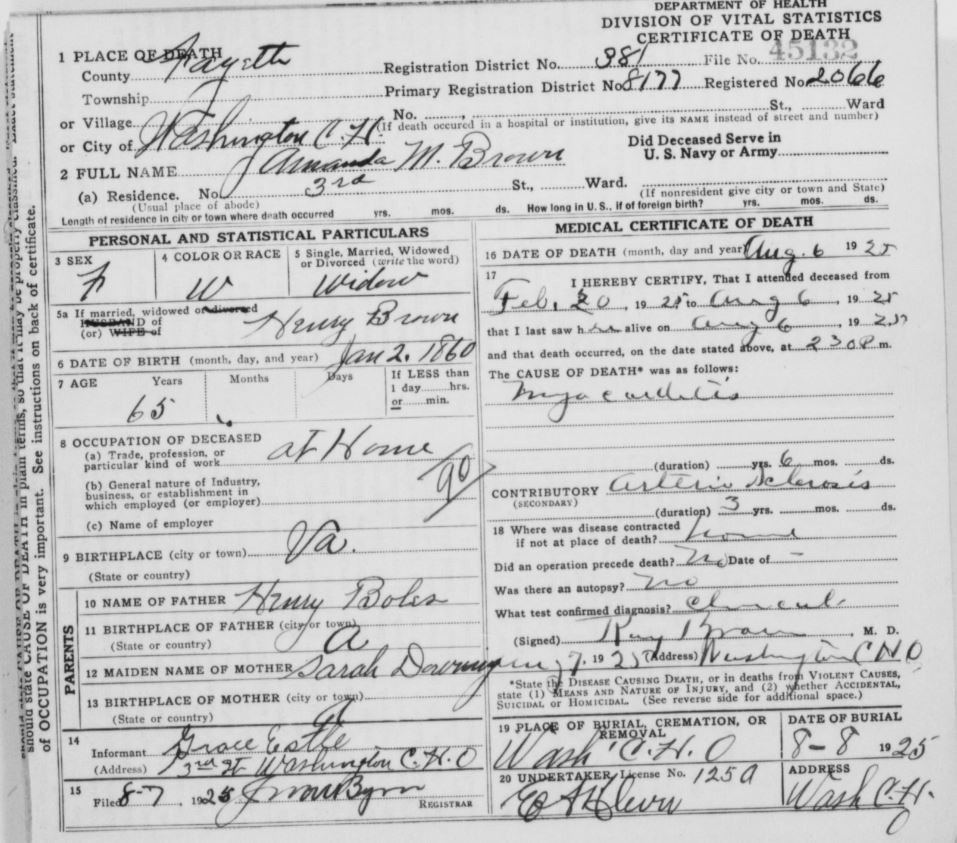 DEPARTMENT OF HEALTH
DIVISION OF VITAL STATISTICS
CERTIFICATE OF DEATH
1 PLACE OF DEATH
County Fayette Registration District No. 381 File No. 45132
Township Primary Registration District No 8177 Registered No 2066
or Village No. St., Ward
or City of Washington C.H. (If death occured in a hospital or institution, give its NAME instead of street and number)
Did Deceased Serve in
U. S. Navy or Army
2 FULL NAME Amanda M. Brown
(a) Residence. No. 3rd St., Ward.
(Usual place of abode) (If nonresident give city or town and State)
Length of residence in city or town where death occurred yrs. mos. ds. How long in U. S., if of foreign birth? yrs. mos. ds.
PERSONAL AND STATISTICAL PARTICULARS
3 SEX F
4 COLOR OR RACE W
5 Single, Married, Widowed
or Divorced (write the word)
Widow
5a If married, widowed or divorced
HUSBAND of
(or) WIFE of Henry Brown
6 DATE OF BIRTH (month, day, and year) Jan 2. 1860
7 AGE Years Months Days If LESS than
1 day hrs.
or min.
65
8 OCCUPATION OF DECEASED
(a) Trade, profession, or
particular kind of work at Home
(b) General nature of Industry,
business, or establishment in
which employed (or employer)
90
(c) Name of employer
9 BIRTHPLACE (city or town) Va.
(State or country)
PARENTS
10 NAME OF FATHER Henry Boles
11 BIRTHPLACE OF FATHER (city or town)
(State or country)
12 MAIDEN NAME OF MOTHER Sarah
13 BIRTHPLACE OF MOTHER (city or town)
(State or country)
14
Informant Grace Estle
(Address) 3rd St Washington C.H. O
15
Filed 8-7, 1925
REGISTRAR
MEDICAL CERTIFICATE OF DEATH
16 DATE OF DEATH (month, day and year) Aug. 6 1925
17
I HEREBY CERTIFY, That I attended deceased from
Feb, 20, 1925 to Aug 6, 1925
that I last saw her alive on Aug 6, 1925
and that death occurred, on the date stated above, at 230 P.m.
The CAUSE OF DEATH* was as follows:
Myocarditis
(duration) yrs. 6 mos. ds.
CONTRIBUTORY Arterio Sclerosis
(SECONDARY)
(duration) 3 yrs. mos. ds.
18 Where was disease contracted
if not at place of death?
Did an operation precede death? No Date of -
Was there an autopsy? No
What test confirmed diagnosis? Clinical
(Signed) M. D.
7, 1925 (Address) Washington C H O
*State the DISEASE CAUSING DEATH, or in deaths from VIOLENT CAUSES,
state (1) MEANS AND NATURE OF INJURY, and (2) whether ACCIDENTAL,
SUICIDAL or HOMICIDAL. (See reverse side for additional space.)
19 PLACE OF BURIAL, CREMATION, OR
REMOVAL
Wash C.H. O
DATE OF BURIAL
8-8 1925
20 UNDERTAKER, License No. 125A
ADDRESS
Wash C.H. O
should state CAUSE OF DEATH in plain terms, so that it may be properly classified. Exact statement
of OCCUPATION is very important. See instructions on back of certificate.